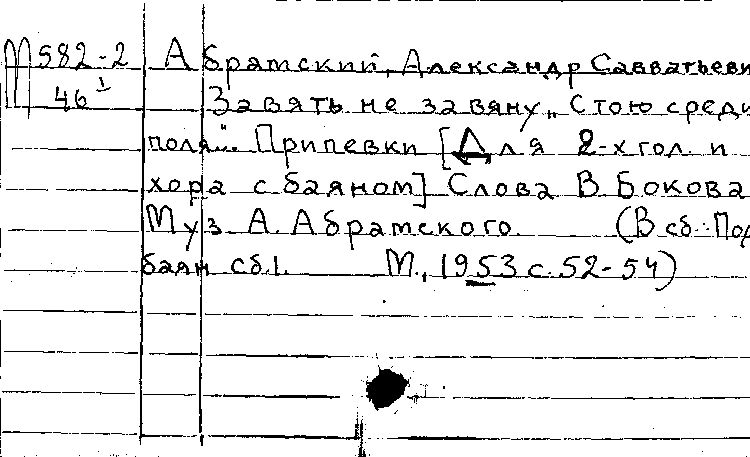 М 582-2 Абратский, Александр Савватьеви
46¹ Завять не завяну „Стою среди
поля". Припевки [Для 2-х гол. и
хора с баяном] Слова В. Бокова
Муз. А. Абратского. (В сб.: Под
баян сб.1. М., 1953 с. 52-54)